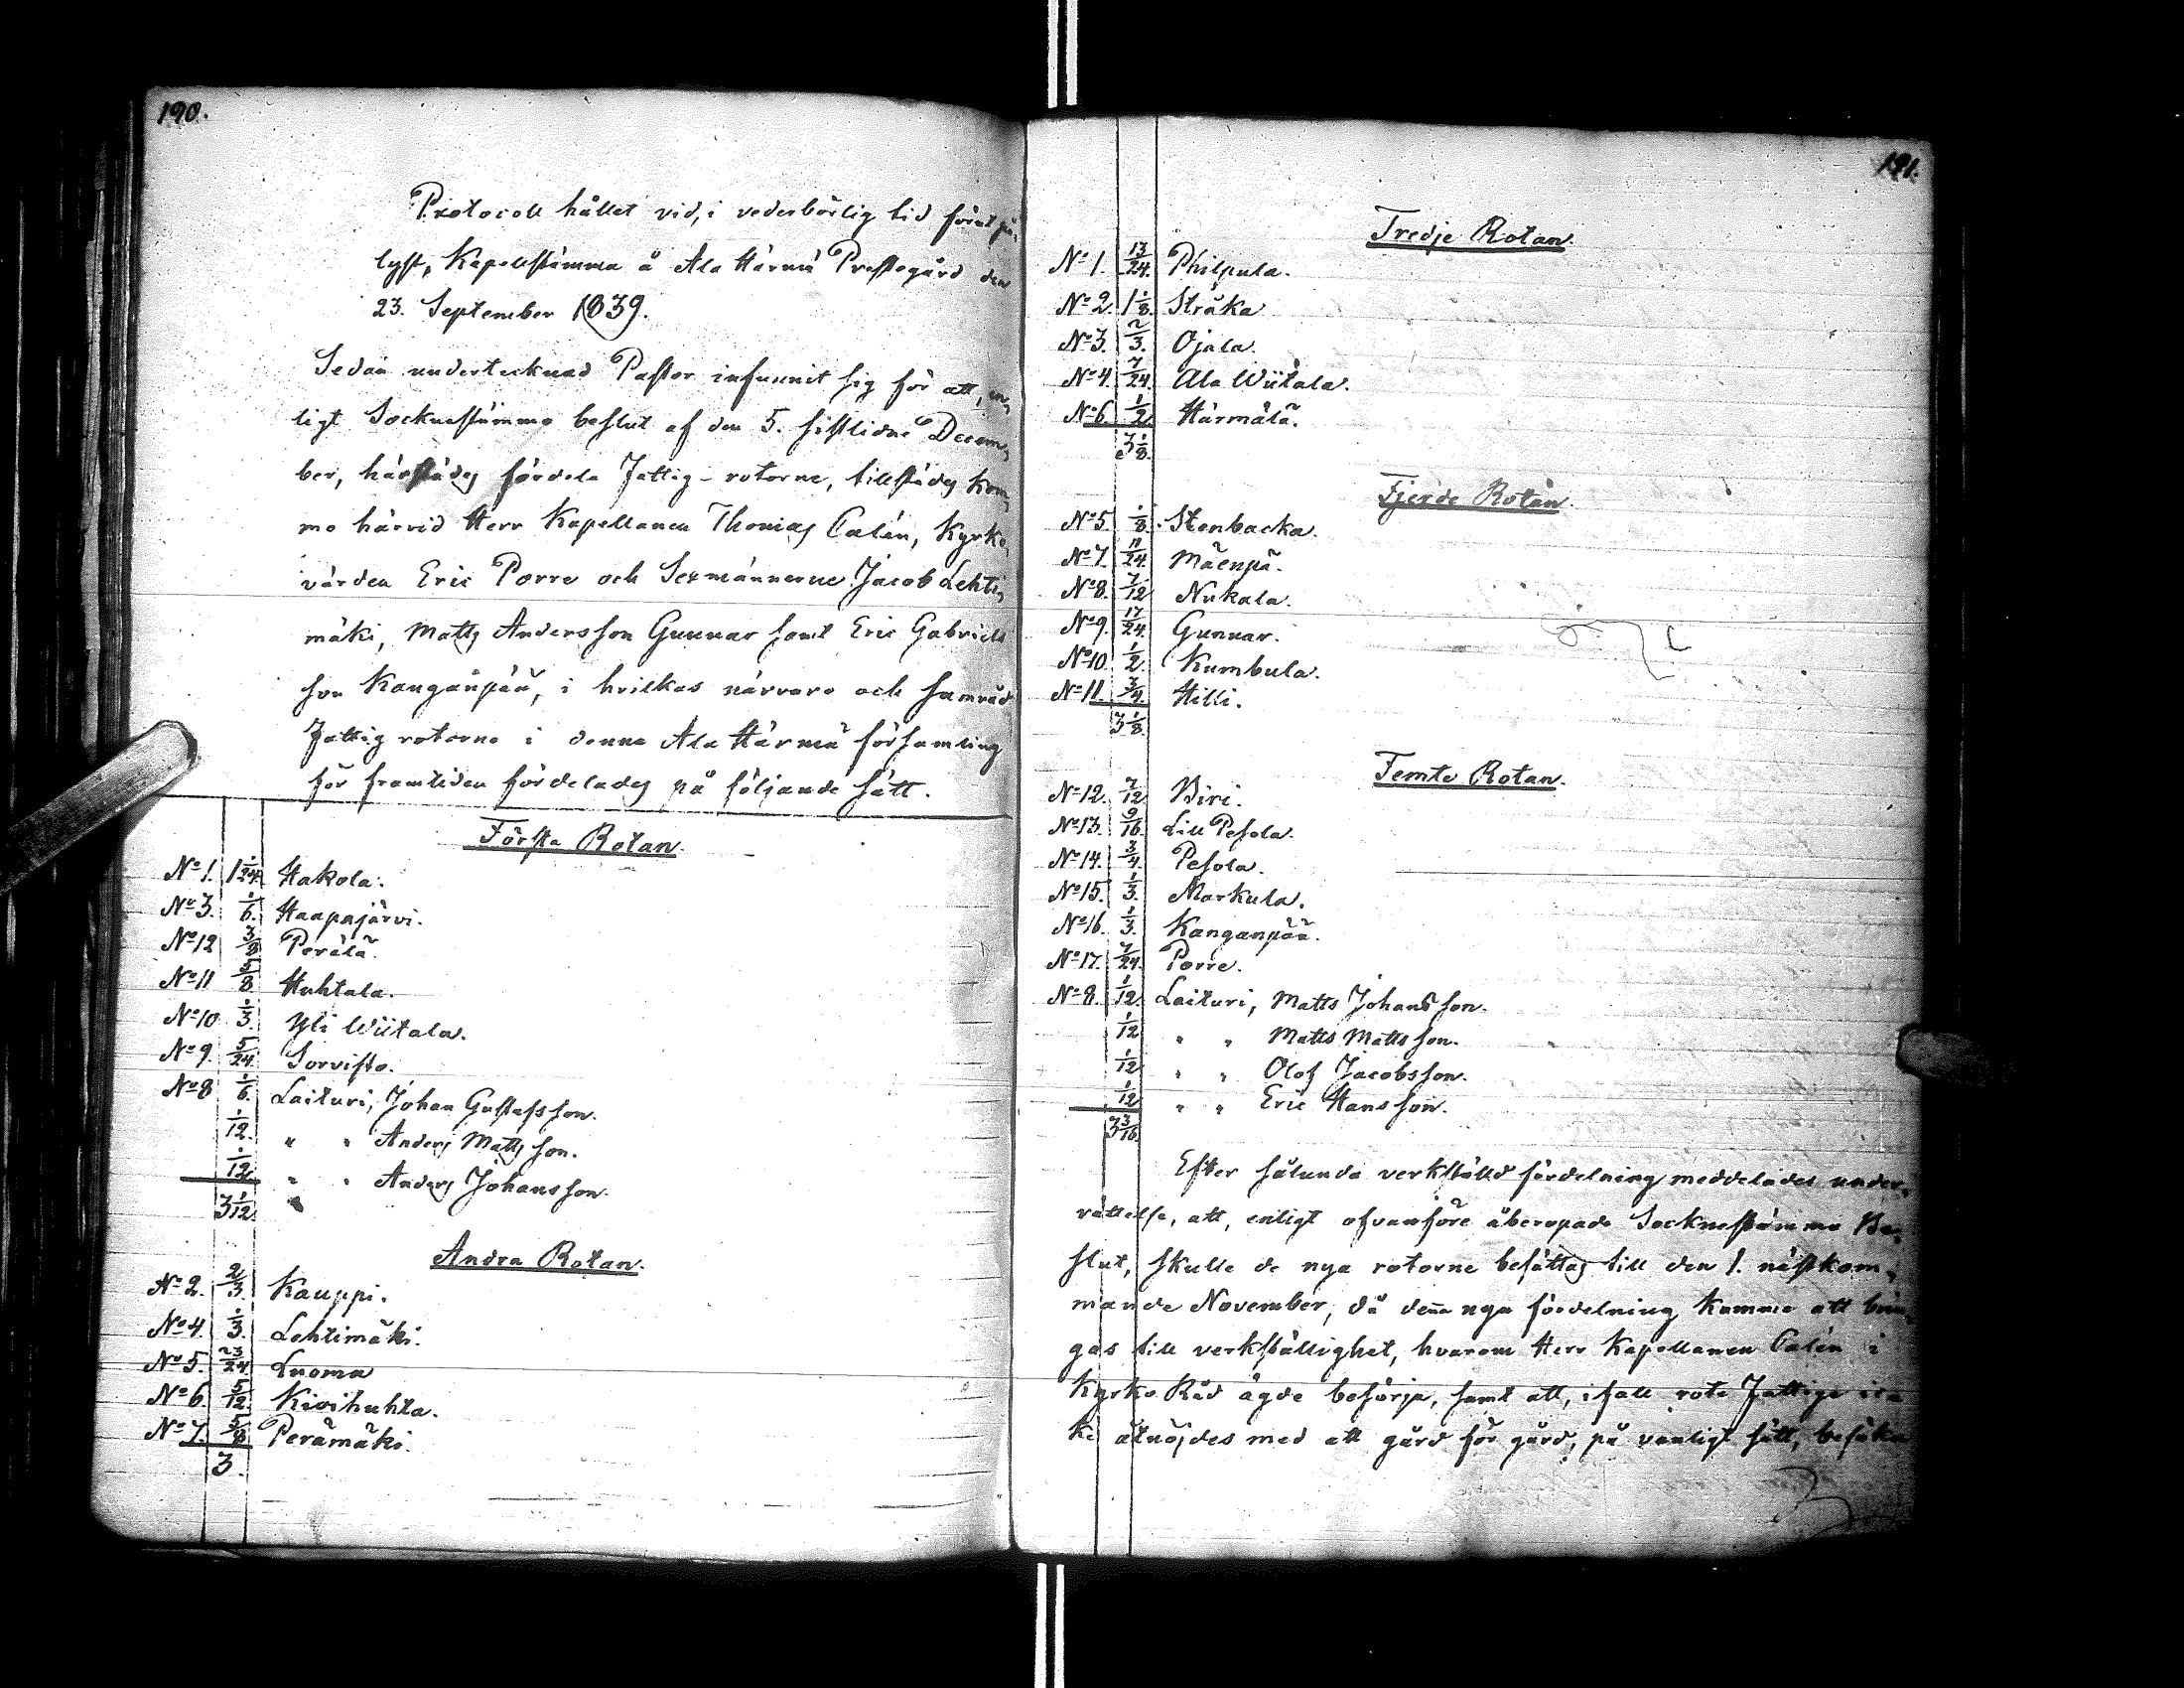 190.
Protocoll hållet vid, i vederbörlig tid förut på,
lyst, Kapellstämma å Ala Härmä Prestegård den
23. September 1839.
Sedan undertecknad Pastor infunnit sig för att, en,
ligt Socknestämmo beslut af den 5. sistlidne Decem,
ber, härstädes fördela Fattig-rotorne, tillstädes kom,
mo härvid Herr Kapellanen Thomas Calén, Kyrko,
värden Eric Porre och Sexmännerne Jacob Lehti,
mäki, Matts Andersson Gunnar samt Eric Gabriels
son Kanganpää, i hvilkas närvaro och samråd
Fattig rotorne i denna Ala Härmä församling
för framtiden fördelades på följande sätt.
Första Rotan.
No 1. 1 1/24. Hakola.
No 3. 1/6. Haapajärvi.
No 12 3/8 Perälä.
No 11 5/8. Huhtala.
No 10 1/3. Yli Wiitala.
No 9. 5/24. Sorvisto.
No 8 1/6. Laituri, Johan Gustafsson.
1/12. " " Anders Mattsson.
1/12. " " Anders Johansson.
3 1/12
Andra Rotan.
No 2. 2/3. Kauppi.
No 4. 1/3. Lehtimäki.
No 5. 23/24. Luoma
No 6. 5/12. Kivihuhta.
No 7. 5/8 Perämäki.
3.
191.
Tredje Rotan.
No 1. 13/24. Philpula.
No 2. 1 1/8. Stråka
No 3. 2/3. Ojala.
No 4. 7/24. Ala Wiitala.
No 6. 1/2 Härmälä.
3 1/8.
Fjerde Rotan.
No 5. 1/8. Stenbacka.
No 7. 11/24. Mäenpä.
No 8. 7/12 Nukala.
No 9. 17/24. Gunnar.
No 10. 1/2. Kumbula.
No 11. 3/4. Hilli.
3 1/8.
Femte Rotan.
No 12. 7/12 Biri.
No 13. 9/16. Lill Pesola.
No 14. 3/4. Pesola.
No 15. 1/3. Markula.
No 16. 1/3. Kanganpää.
No 17. 7/24. Porre.
No 8. 1/12. Laituri, Matts Johansson.
1/12 " " Matts Mattsson.
1/12 " " Olof Jacobsson.
1/12 " " Eric Hansson.
3 3/16.
Efter sålunda verkställd fördelning meddelades under,
rättelse, att, enligt ofvanföre åberopade Socknestämmo Be,
slut, skulle de nya rotorne besättas till den 1. nästkom,
mande November, då denna nya fördelning komme att brin,
gas till verkställighet, hvarom Herr Kapellanen Calén i
Kyrko Råd ägde besörja, samt att, ifall rote Fattige ic-
ke åtnöjdes med att gård för gård, på vanligt sätt, besöka